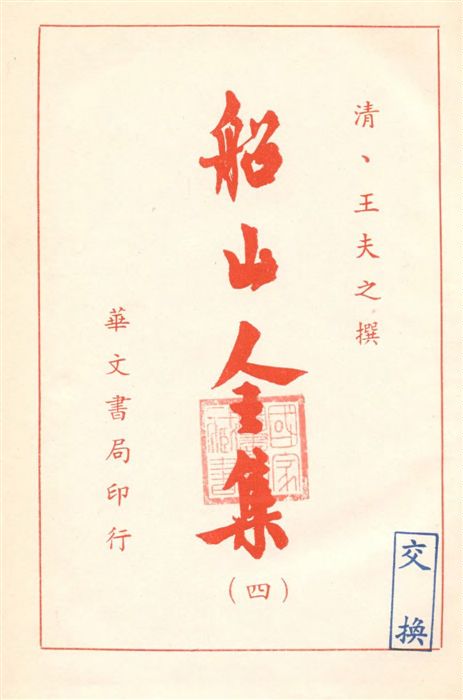 清、王夫之撰
船山全集
（四）
華文書局印行
國家
藏書
交換